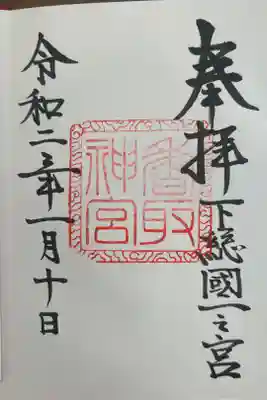 奉拝
下総國一之宮
香取神宮
令和二年一月十日